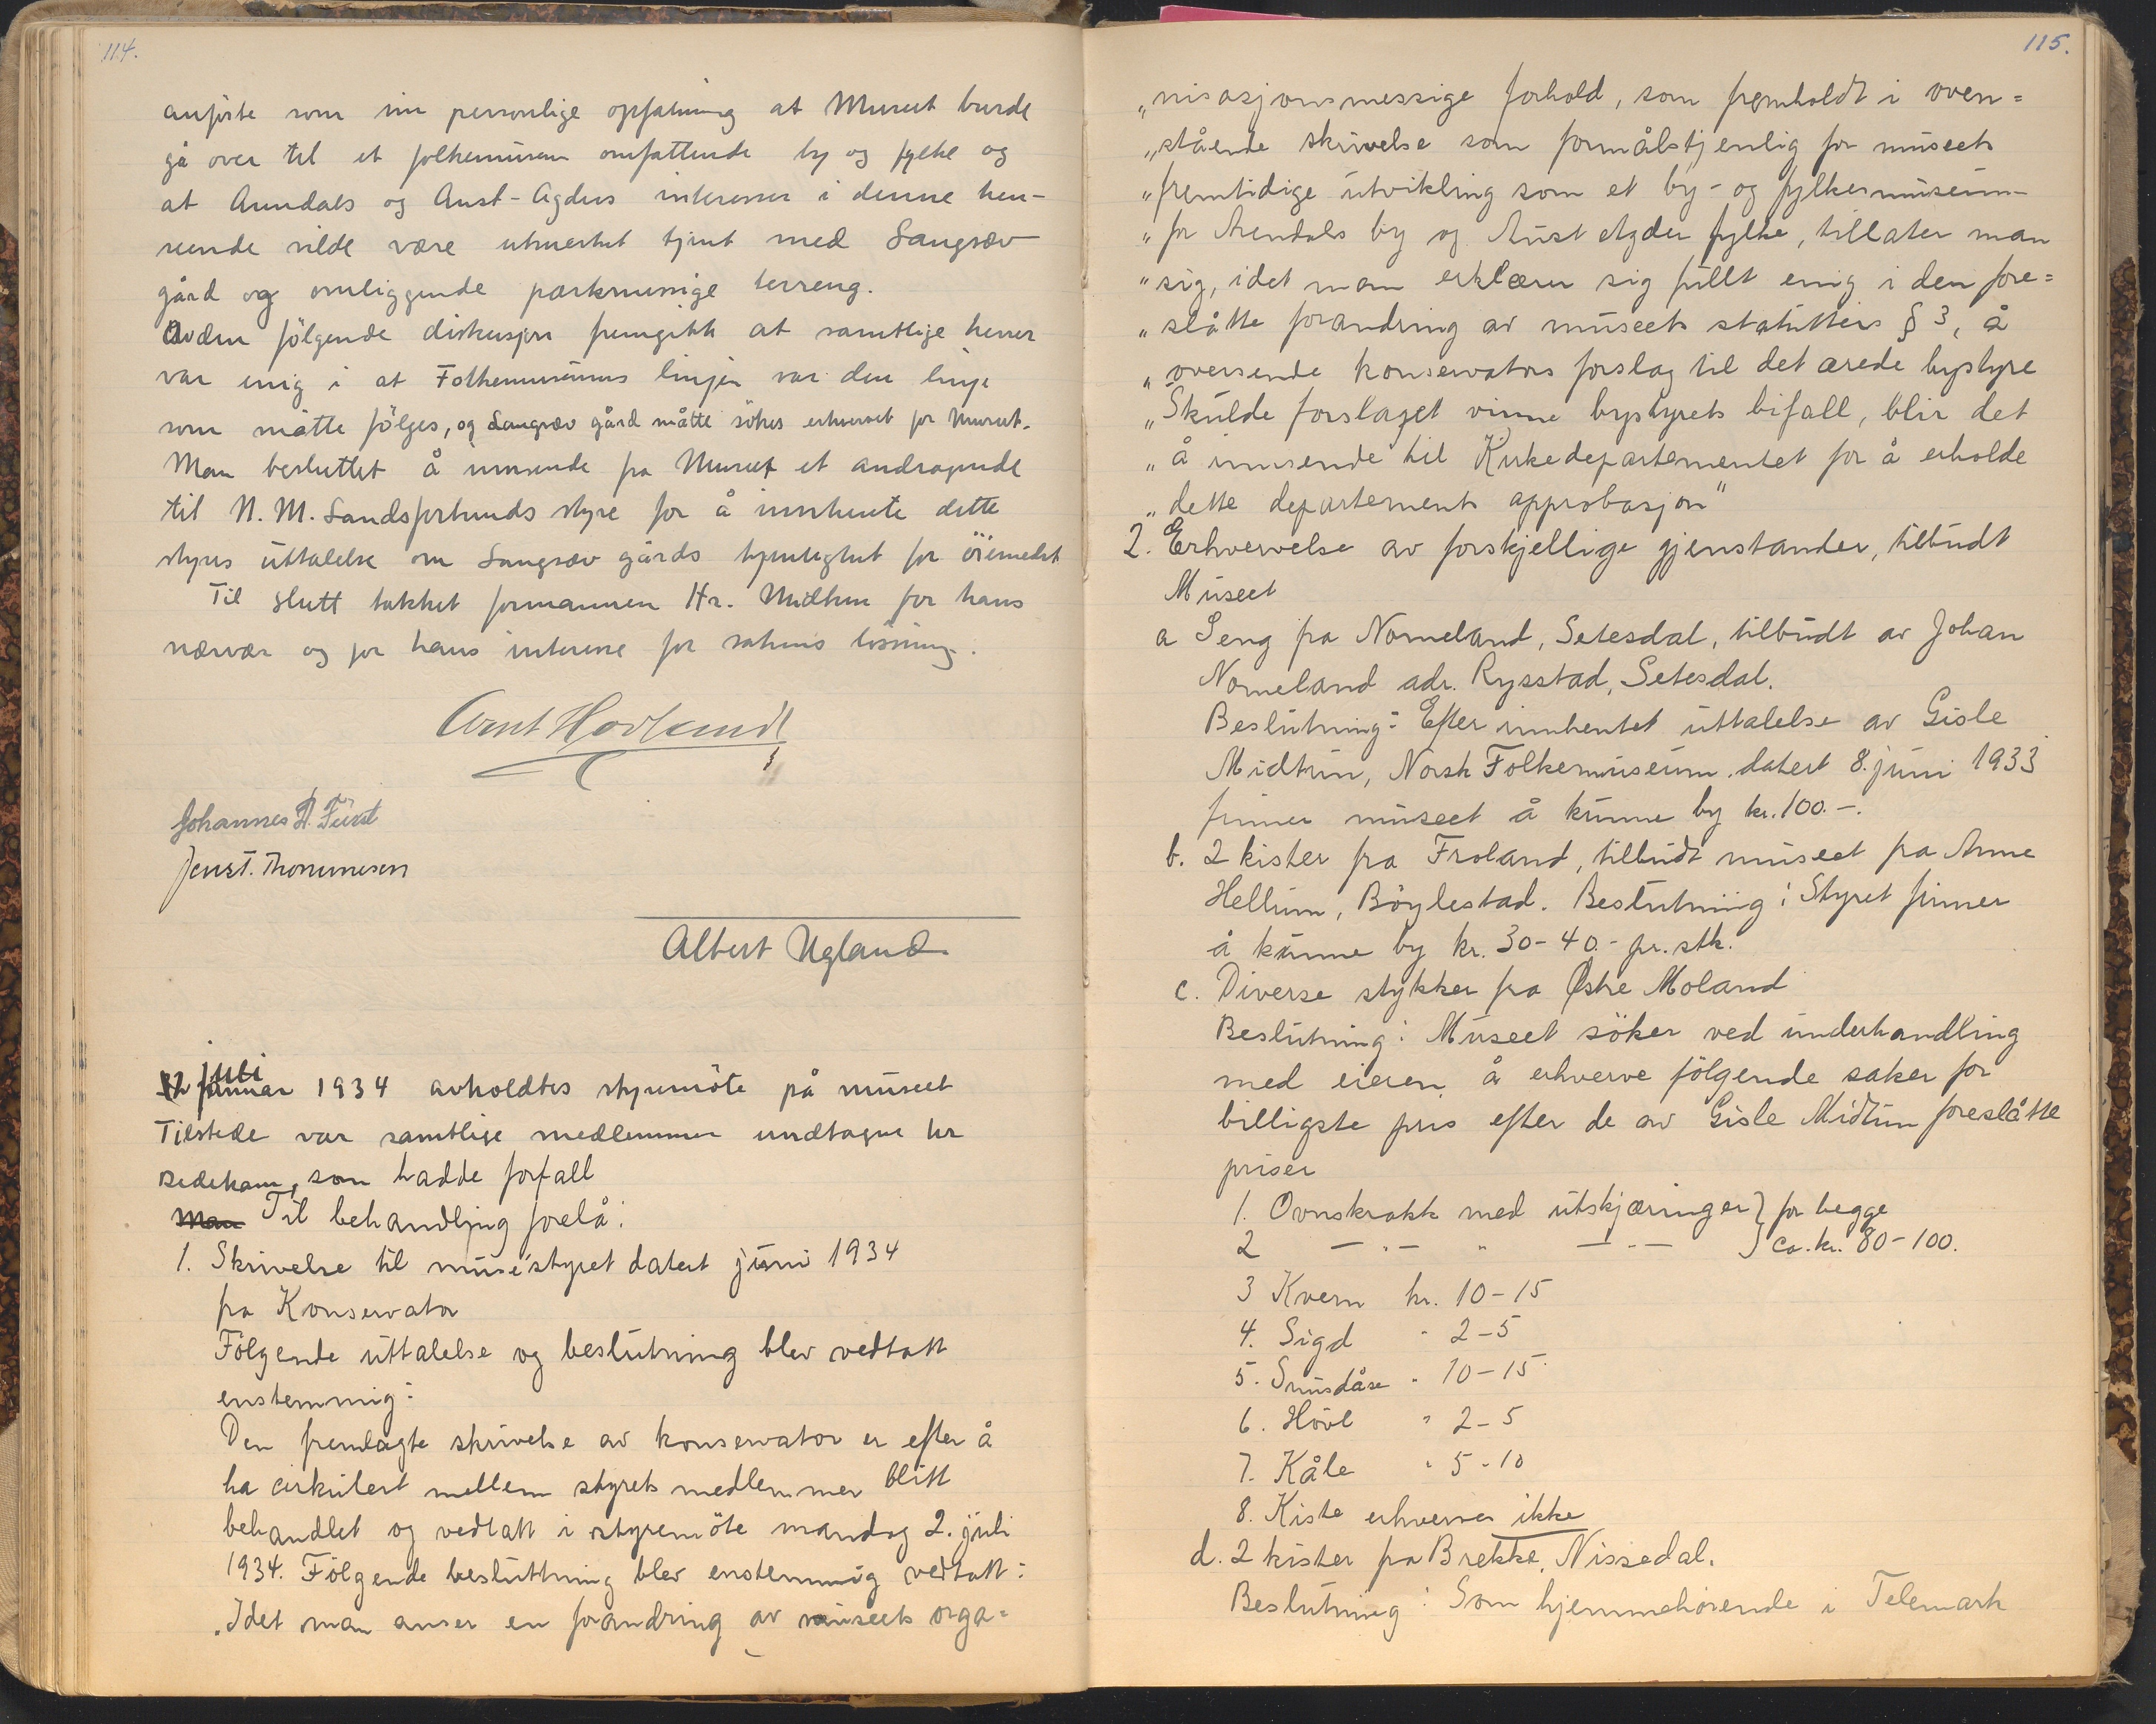 114.
anførte som sin personlige opfatning at Museet burde
gå over til et folkemuseum omfattende by og fylke og
at Arendals og Aust-Agders interesser i denne hen-
seende vilde være utmerket tjent med Langsæv
gård og omliggende parkmessige terreng.
Av den følgende diskusjon fremgikk at samtlige herrer
var enig i at Folkemuseums linjen var den linje
som måtte følges, og Langsæv gård måtte søkes erhvervet for Museet.
Man besluttet å innsende fra Museet et andragende
til N. M. Landsforbunds styre for å innhente dette
styres uttalelse om Langsæv gårds tjenlighet for øiemedet.
Til slutt takket formannen Hr. Midtun for hans
nærvær og for hans interesse for sakens løsning.
Arnt Hovlandt
Johannes A. Fürst
Jens T. Thommesen
Albert Ugland
2 juli
januar 1934 avholdtes styremöte på museet
Tilstede var samtlige medlemmer undtagne hr
Bedekam, som hadde forfall
Man Til behandling forelå:
1. Skrivelse til muséstyret datert juni 1934
fra Konservator
Følgende uttalelse og beslutning blev vedtatt
enstemmig:
Den fremlagte skrivelse av konservator er efter å
ha cirkulert mellem styrets medlemmer blitt
behandlet og vedtatt i styremöte mandag 2. juli
1934. Følgende besluttning blev enstemmig vedtatt:
„Idet man anser en forandring av museets orga=
115.
„nisasjonsmessige forhold, som fremholdt i oven=
„stående skrivelse som formålstjenlig for museets
„fremtidige utvikling som et by- og fylkesmuseum
„for Arendals by og Aust Agder fylke, tillater man
„sig, idet man erklærer sig fullt enig i den fore=
„slåtte forandring av museets statutters § 3, å
„oversende konservators forslag til det ærede bystyre
„Skulde forslaget vinne bystyrets bifall, blir det
„å innsende til Kirkedepartementet for å erholde
„dette departements approbasjon"
2. Erhvervelse av forskjellige gjenstander, tilbudt
Museet
a Seng fra Nomeland, Setesdal, tilbudt av Johan
Nomeland adr. Rysstad, Setesdal.
Beslutning: Efter innhentet uttalelse av Gisle
Midtun, Norsk Folkemuseum. datert 8. juni 1933
finner museet å kunne by kr. 100.-.
b. 2 kister fra Froland, tilbudt museet fra Anne
Hellum, Böylestad. Beslutning: Styret finner
å kunne by kr. 30-40.- pr. stk.
c. Diverse stykker fra Østre Moland
Beslutning: Museet söker ved underhandling
med eieren å erhverve fölgende saker for
billigste pris efter de av Gisle Midtun foreslåtte
priser
1. Ovnskrakk med utskjæringer } for begge
2 —"— " —"— } ca. kr. 80-100.
3 Kvern kr. 10-15
4. Sigd " 2-5
5. Snusdåse " 10-15
6. Hövl " 2-5
7. Kåle " 5-10
8. Kiste erhverves ikke
d. 2 kister fra Brekke, Nissedal.
Beslutning: Som hjemmehörende i Telemark